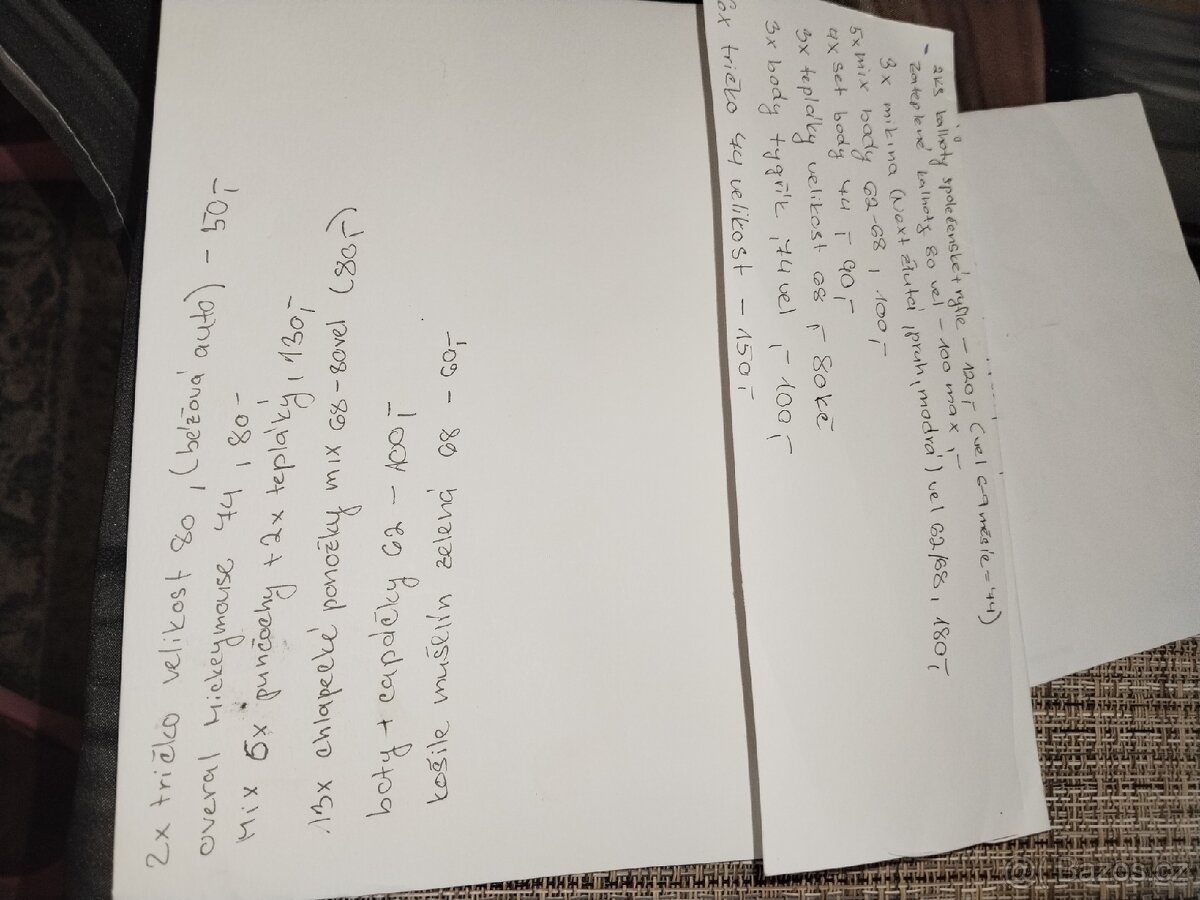 2x tričko velikost 80, (béžová auto) - 50,-
overal Mickeymouse 74, 80-
Mix 5x punčochy + 2x tepláky, 130,-
13x chlapecké ponožky mix 68-80vel (80,-)
boty + capáčky 62 - 100,-
košile mušelín zelená 68 - 60,-
- 2ks kalhoty společenské + ryfle - 120,- (vel 6-9 měsíc = 74)
zateplené kalhoty 80 vel - 100 max,-
3x mikina (Next žlutá, pruh, modrá) vel 62/68, 180,-
5x mix body 62-68, 100,-
4x set body 74,- 90,-
3x tepláky velikost 68,- 80kč
3x body tygřík, 74 vel,- 100,-
6x tričko 74 velikost - 150,-
© Bazos.cz